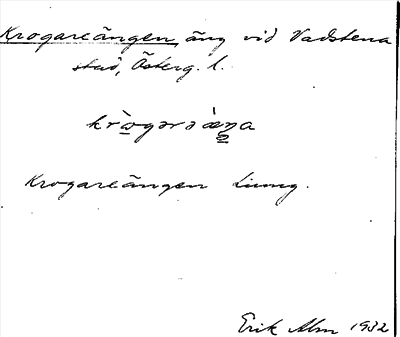 Krogareängen, äng vid Vadstena
stad, Österg. l.
krògərəæ̀ŋa
Krogareängen Ljung.
Erik Alm 1932